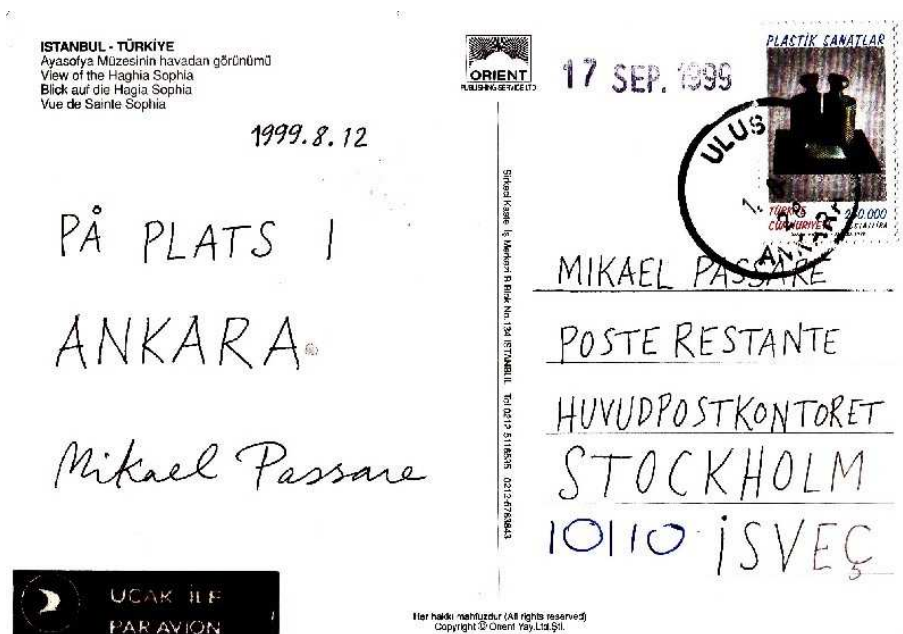 ISTANBUL - TÜRKİYE
Ayasofya Müzesinin havadan görünümü
View of the Haghia Sophia
Blick auf die Hagia Sophia
Vue de Sainte Sophia
1999.8.12
PÅ PLATS I
ANKARA
Mikael Passare
UCAK İLE
PAR AVION
ORIENT
PUBLISHING SERVICE LTD
17 SEP. 1999
PLASTİK SANATLAR
ULUS
ANKARA
TÜRKİYE
CUMHURİYETİ
250.000
MIKAEL PASSARE
POSTE RESTANTE
HUVUDPOSTKONTORET
STOCKHOLM
10110 İSVEÇ
Her hakkı mahfuzdur (All rights reserved)
Copyright © Orient Yay.Ltd.Şti.